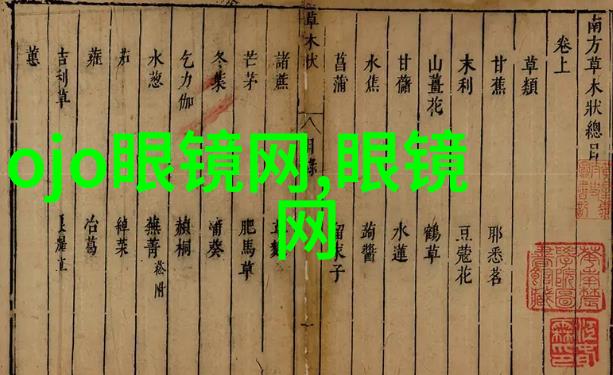 南方草木狀總目
卷上
草類
甘蕉 耶悉茗
末利 豆蔻花
山薑花 鶴草
甘藷 水蓮
水蕉 蒟醬
菖蒲 子
草木狀 目錄
諸蔗
芒茅 肥馬草
冬葉 蒲葵
乞力伽 赬桐
水葱 蕪菁 菘附
茄 綽菜
蕹 冶葛
吉利草
蕙
ojo眼镜网,眼镜
网